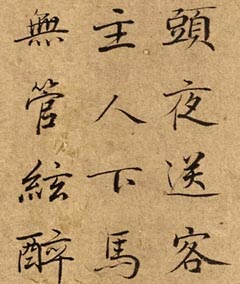 頭夜送客
主人下馬
無管絃醉